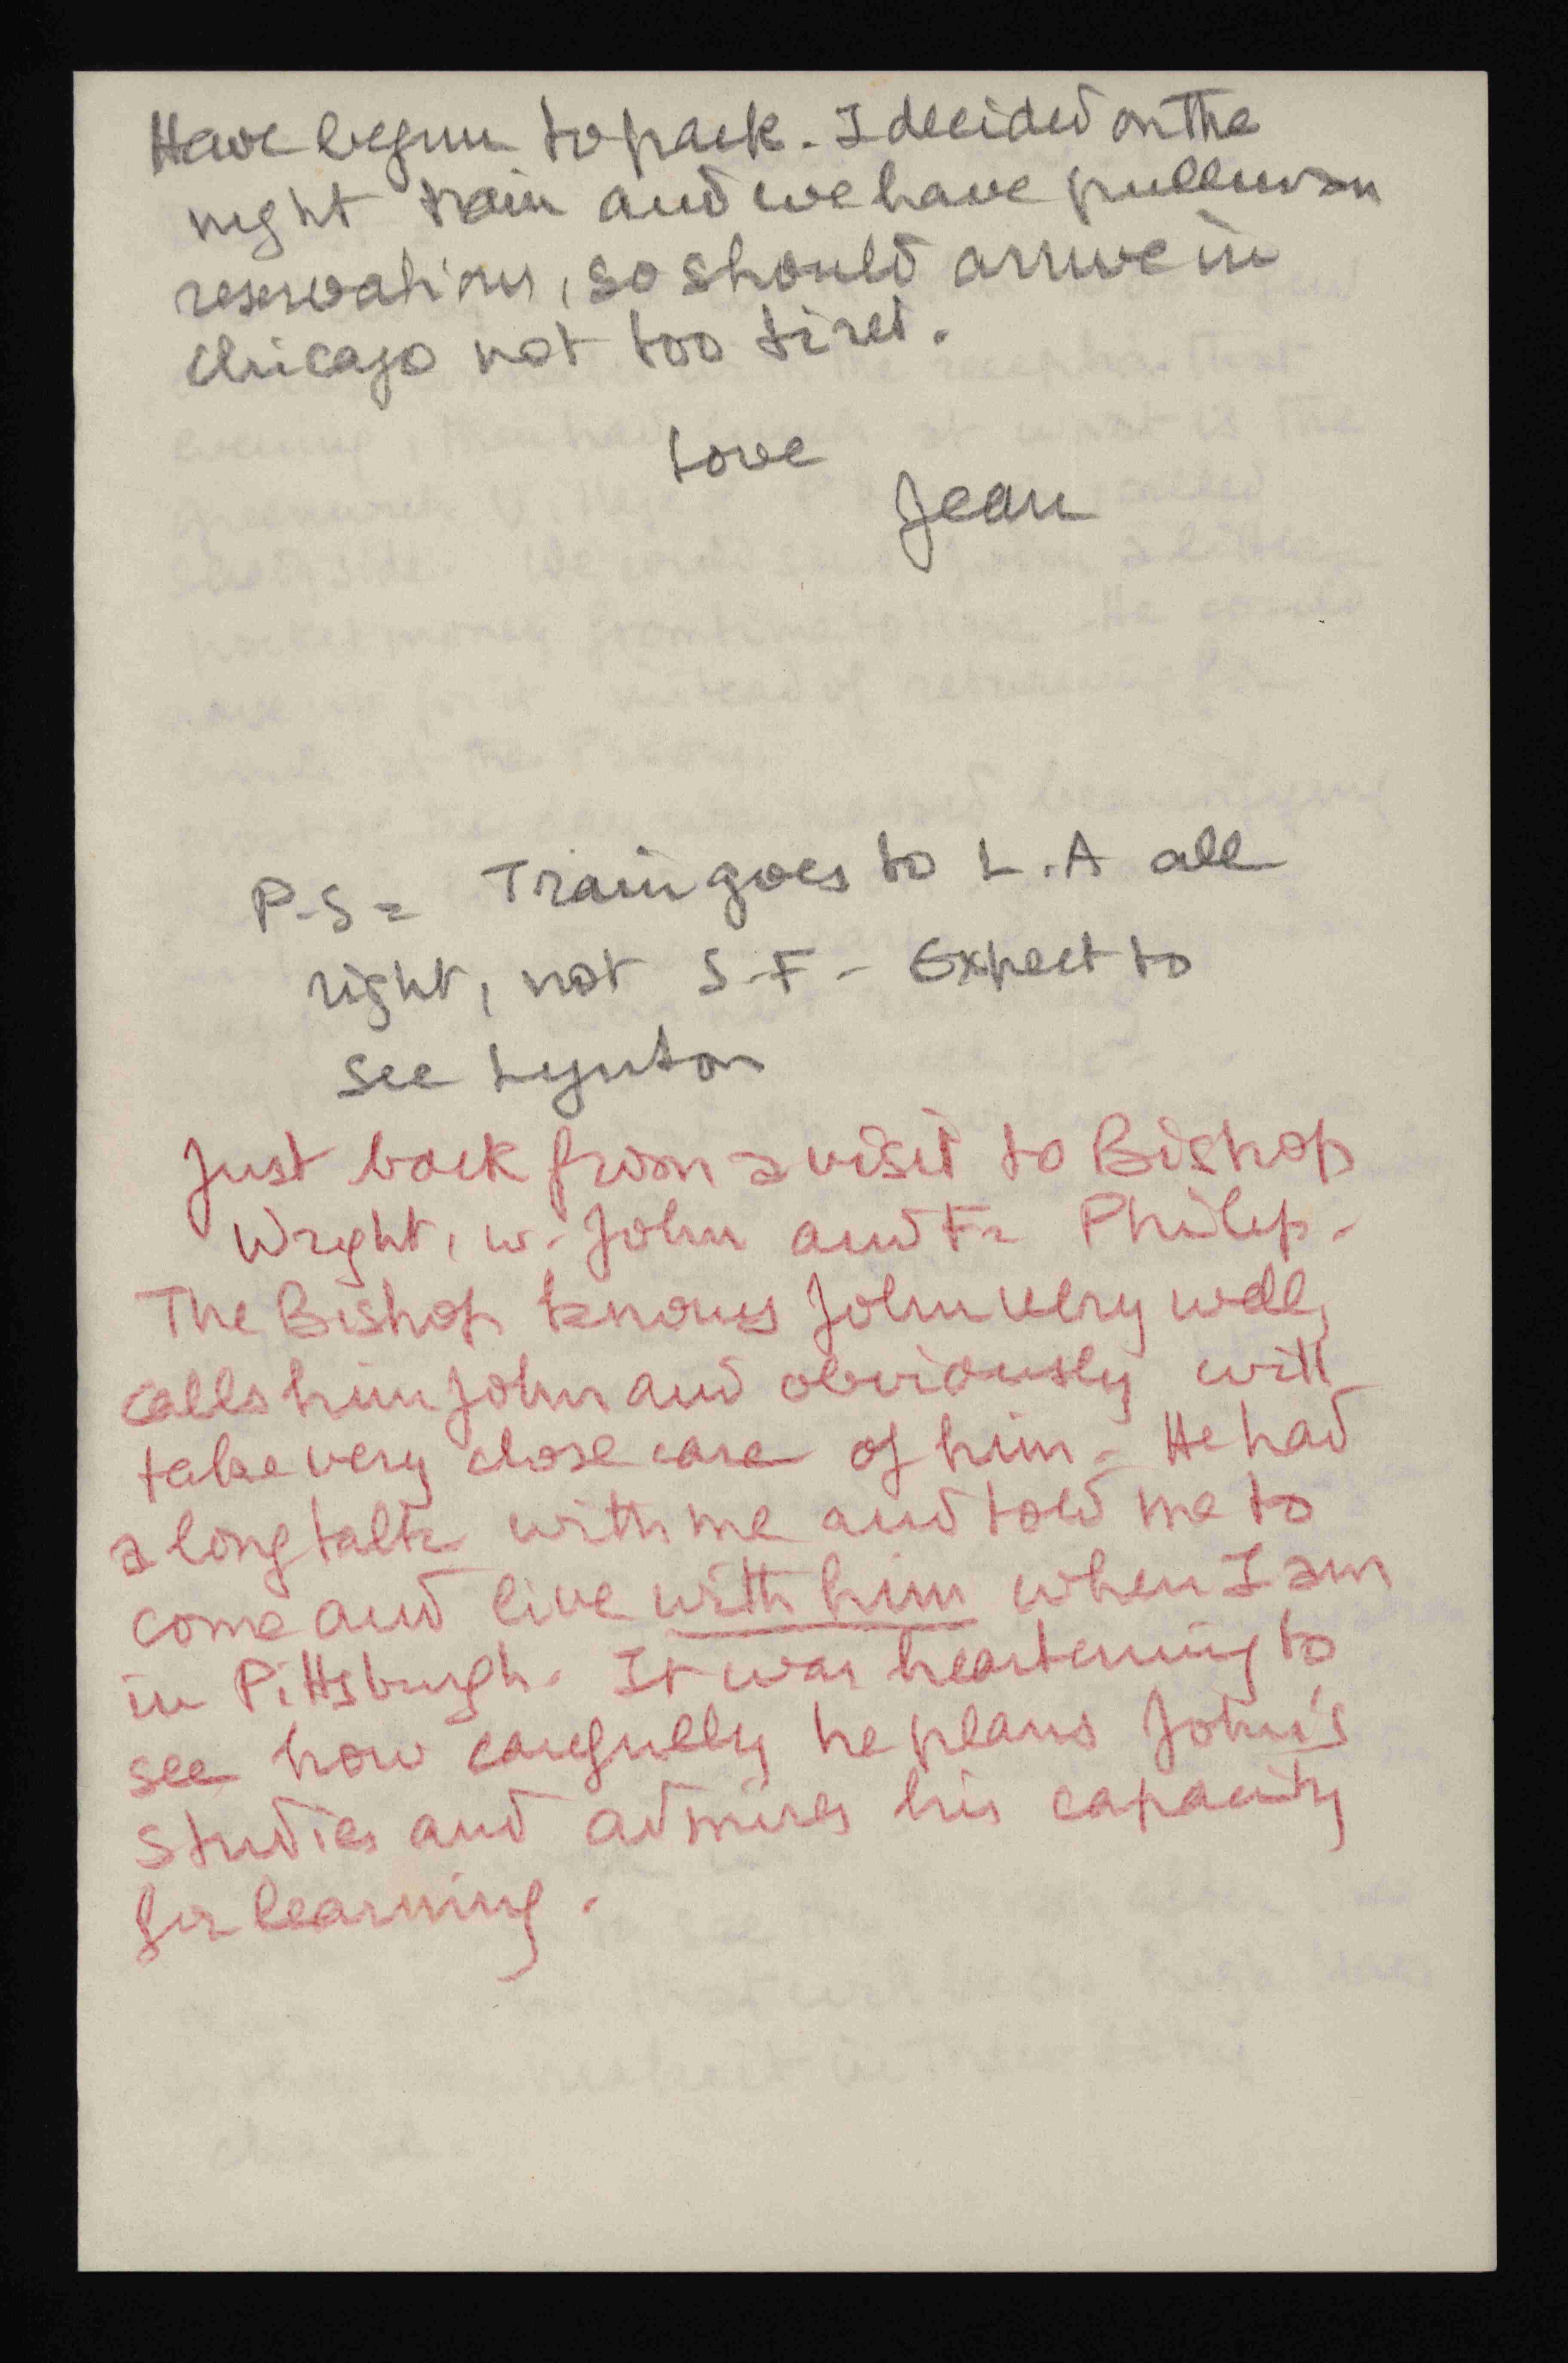 Have begun to pack. I decided on the
night train and we have pullman
reservations, so should arrive in
Chicago not too tired.
Love
Jean
P-S = Train goes to L.A all
right, not S-F - Expect to
see Lynton
Just back from a visit to Bishop
Wright, w. John and Fr Philip.
The Bishop knows John very well,
calls him John and obviously will
take very close care of him. He had
a long talk with me and told me to
come and live with him when I am
in Pittsburgh. It was heartening to
see how carefully he plans John's
studies and admires his capacity
for learning.